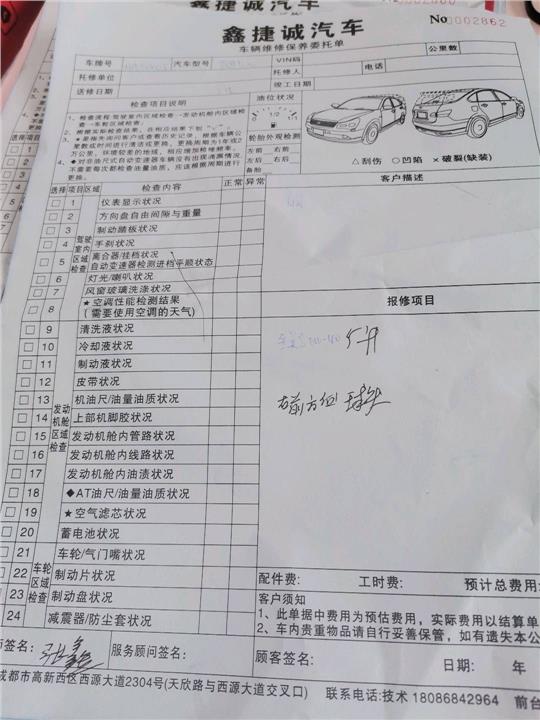 鑫捷诚汽车
No 0002862
鑫捷诚汽车
车辆维修保养委托单
公里数
车牌号 汽车型号 VIN码
托修单位 托修人 电话
送修日期 竣工日期
检查项目说明 油位状况
1、检查流程:驾驶室内区域检查→发动机舱内区域检查→车轮区域检查;
2、根据实际检查结果,在相应结果下划“√”;
1/2
轮胎外观检测
左前 右前
左后 右后
备胎
△刮伤 ○凹陷 ×破裂(缺装)
选择 项目 区域 检查内容 正常 异常 客户描述
驾驶室内区域检查
1 仪表显示状况
2 方向盘自由间隙与重量
3 制动踏板状况
4 手刹状况
5 离合器/挂档状况
自动变速器检测进档平顺状态
6 灯光/喇叭状况
7 风窗玻璃洗涤状况
8 ★空调性能检测结果
(需要使用空调的天气)
报修项目
发动机舱区域检查
9 清洗液状况
10 冷却液状况
11 制动液状况
12 皮带状况
13 机油尺/油量油质状况
14 上部机脚胶状况
15 发动机舱内管路状况
16 发动机舱内线路状况
17 发动机舱内油渍状况
18 ◆AT油尺/油量油质状况
19 ★空气滤芯状况
20 蓄电池状况
车轮区域检查
21 车轮/气门嘴状况
22 制动片状况
23 制动盘状况
24 减震器/防尘套状况
配件费: 工时费: 预计总费用:
客户须知
1、此单据中费用为预估费用,实际费用以结算单
2、车内贵重物品请自行妥善保管,如有遗失本公
师签名: 服务顾问签名: 顾客签名: 日期: 年
成都市高新西区西源大道2304号(天欣路与西源大道交叉口) 联系电话:技术 18086842964 前台